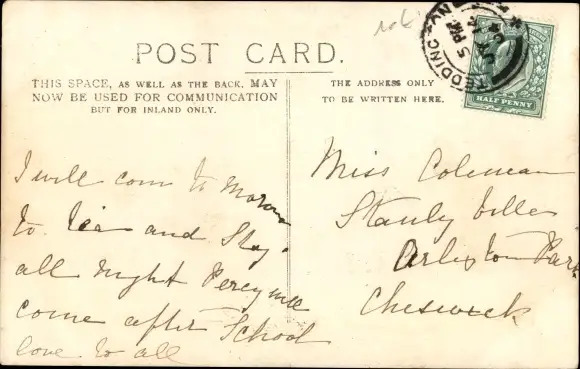 POST CARD.
THIS SPACE, AS WELL AS THE BACK, MAY
NOW BE USED FOR COMMUNICATION
BUT FOR INLAND ONLY.
THE ADDRESS ONLY
TO BE WRITTEN HERE.
TEDDINGTON
5 PM
HALF PENNY
I will com to morow
to Tea and Stay
all Night Percy will
come after School
love to all
Miss Coleman
Stanly Ville
Arlington Park
Cheswick